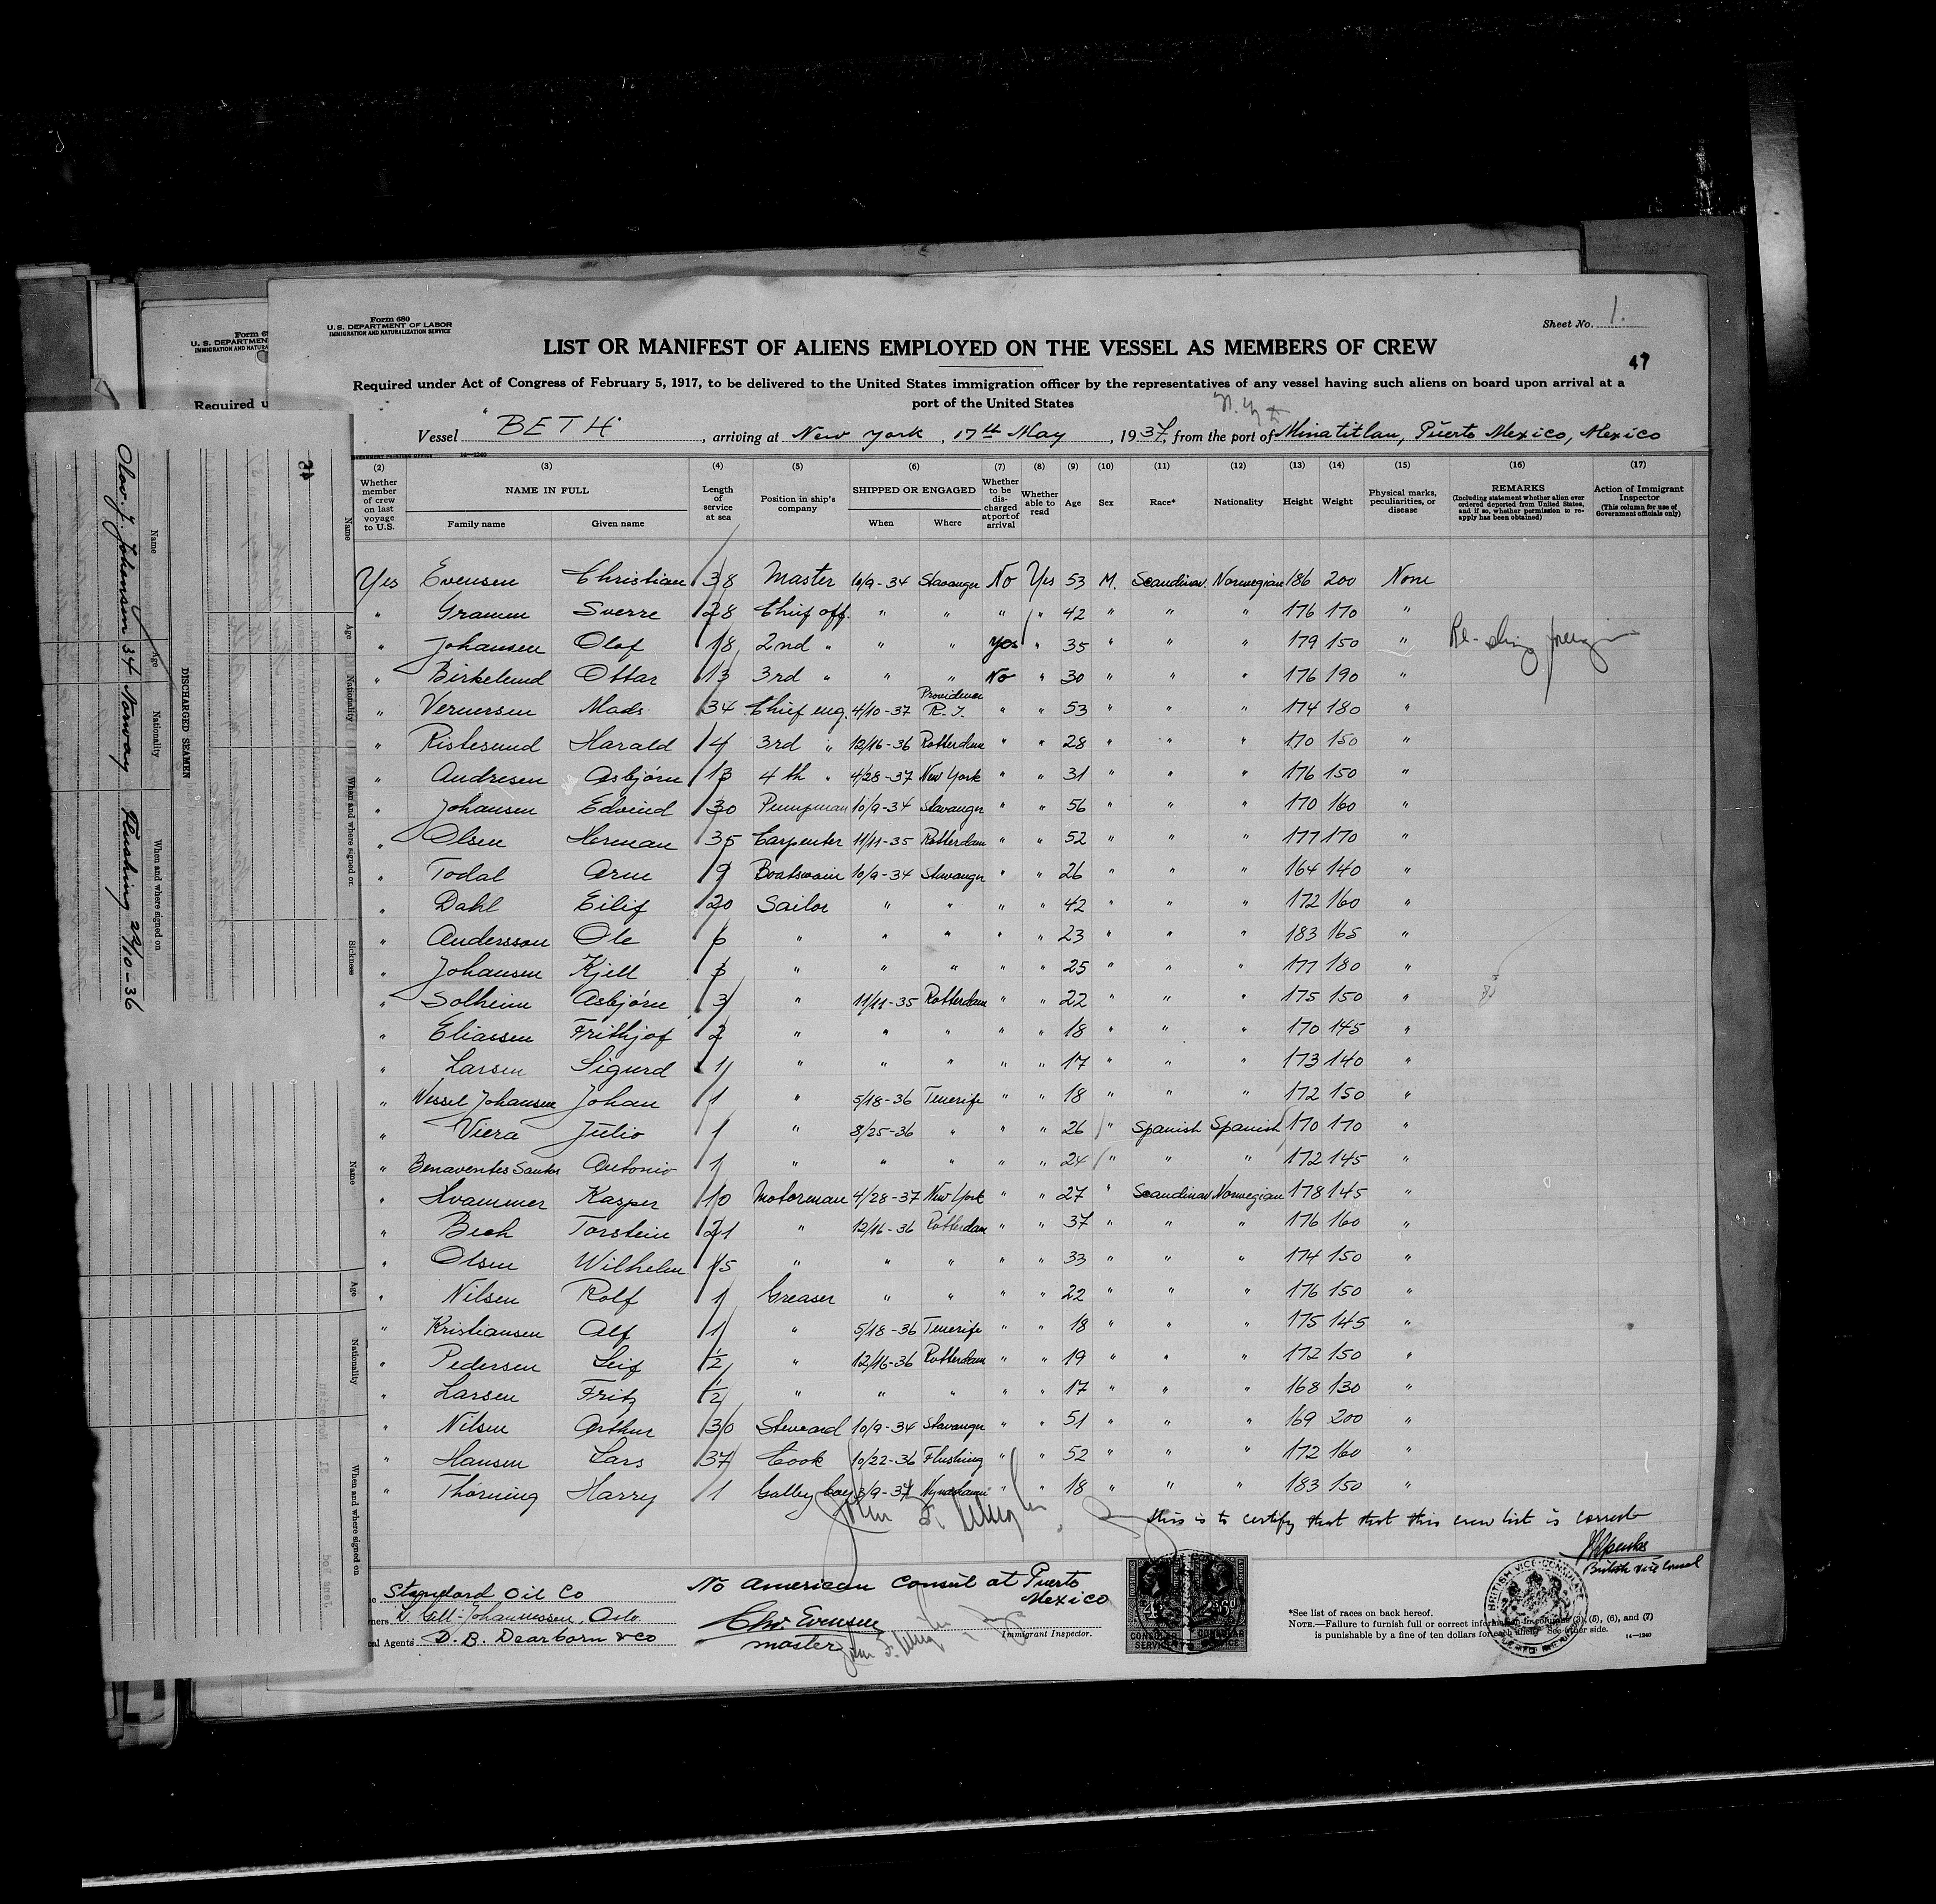 Form 680
U. S. DEPARTMENT OF LABOR
IMMIGRATION AND NATURALIZATION SERVICE
Sheet No. 1.
LIST OR MANIFEST OF ALIENS EMPLOYED ON THE VESSEL AS MEMBERS OF CREW
47
Required under Act of Congress of February 5, 1917, to be delivered to the United States immigration officer by the representatives of any vessel having such aliens on board upon arrival at a
port of the United States
Vessel "BETH", arriving at New York, 17th May, 1937, from the port of Minatitlan, Puerto Mexico, Mexico
(2) (3) (4) (5) (6) (7) (8) (9) (10) (11) (12) (13) (14) (15) (16) (17)
Whether member of crew on last voyage to U.S. NAME IN FULL Family name Given name Length of service at sea Position in ship's company SHIPPED OR ENGAGED When Where Whether to be discharged at port of arrival Whether able to read Age Sex Race* Nationality Height Weight Physical marks, peculiarities, or disease REMARKS (Including statement whether alien ever ordered deported from United States, and if so, whether permission to reapply has been obtained) Action of Immigrant Inspector (This column for use of Government officials only)
Yes Evensen Christian 38 Master 10/9-34 Stavanger No Yes 53 M. Scandinav. Norwegian 186 200 None
" Gramm Sverre 28 Chief off. " " " " 42 " " " 176 170 "
" Johansen Olaf 18 2nd " " " Yes " 35 " " " 179 150 "
" Birkelund Ottar 13 3rd " " " No " 30 " " " 176 190 "
" Vernersen Mads 34 Chief eng. 4/10-37 Providence R.I. " " 53 " " " 174 180 "
" Ristesund Harald 4 3rd " 12/16-36 Rotterdam " " 28 " " " 170 150 "
" Andresen Asbjórn 13 4th " 4/28-37 New York " " 31 " " " 176 150 "
" Johansen Edvind 30 Pumpman 10/9-34 Stavanger " " 56 " " " 170 160 "
" Olsen Herman 35 Carpenter 11/11-35 Rotterdam " " 52 " " " 177 170 "
" Todal Arne 9 Boatswain 10/9-34 Stavanger " " 26 " " " 164 140 "
" Dahl Eilif 20 Sailor " " " " 42 " " " 172 160 "
" Andersson Ole 6 " " " " " 23 " " " 183 165 "
" Johansen Kjell " " " " " 25 " " " 177 180 "
" Solheim Asbjórn 3 " 11/11-35 Rotterdam " " 22 " " " 175 150 "
" Eliassen Frithjof 2 " " " " " 18 " " " 170 145 "
" Larsen Sigurd 1 " " " " " 17 " " " 173 140 "
" Wessel Johansen Johan 1 " 5/18-36 Tenerife " " 18 " " " 172 150 "
" Viera Julio 1 " 8/25-36 " " " 26 " Spanish Spanish 170 170 "
" Benaventes Santos Antonio 1 " " " " " 24 " " " 172 145 "
" Hvammer Kasper 10 Motorman 4/28-37 New York " " 27 " Scandinav Norwegian 178 145 "
" Bech Torstein 21 " 12/16-36 Rotterdam " " 37 " " " 176 160 "
" Olsen Wilhelm 15 " " " " " 33 " " " 174 150 "
" Nilsen Rolf 1 Greaser " " " " 22 " " " 176 150 "
" Kristiansen Alf 1 " 5/18-36 Tenerife " " 18 " " " 175 145 "
" Pedersen Leif 1/2 " 12/16-36 Rotterdam " " 19 " " " 172 150 "
" Larsen Fritz 1/2 " " " " " 17 " " " 168 130 "
" Nilsen Arthur 30 Steward 10/9-34 Stavanger " " 51 " " " 169 200 "
" Hansen Lars 37 Cook 10/22-36 Flushing " " 52 " " " 172 160 "
" Thorning Harry 1 Galley boy 3/9-37 " " 18 " " " 183 150 "
this is to certify that that this crew list is correct
British Vice Consul
Standard Oil Co
Johannessen, Oslo
cal Agents D. B. Dearborn & Co
No American Consul at Puerto Mexico
Chr. Evensen
master
Immigrant Inspector.
CONSULAR SERVICE CONSULAR SERVICE
BRITISH VICE-CONSULATE
*See list of races on back hereof.
NOTE.—Failure to furnish full or correct information in columns (3), (5), (6), and (7)
is punishable by a fine of ten dollars for each alien. See other side.
14—1240
DISCHARGED SEAMEN
Name Age Nationality When and where signed on
Olav. J. Johansen 34 Norway Flushing 22/10-36
Name Age Nationality When and where signed on. Sickness
Name Age Nationality When and where signed on